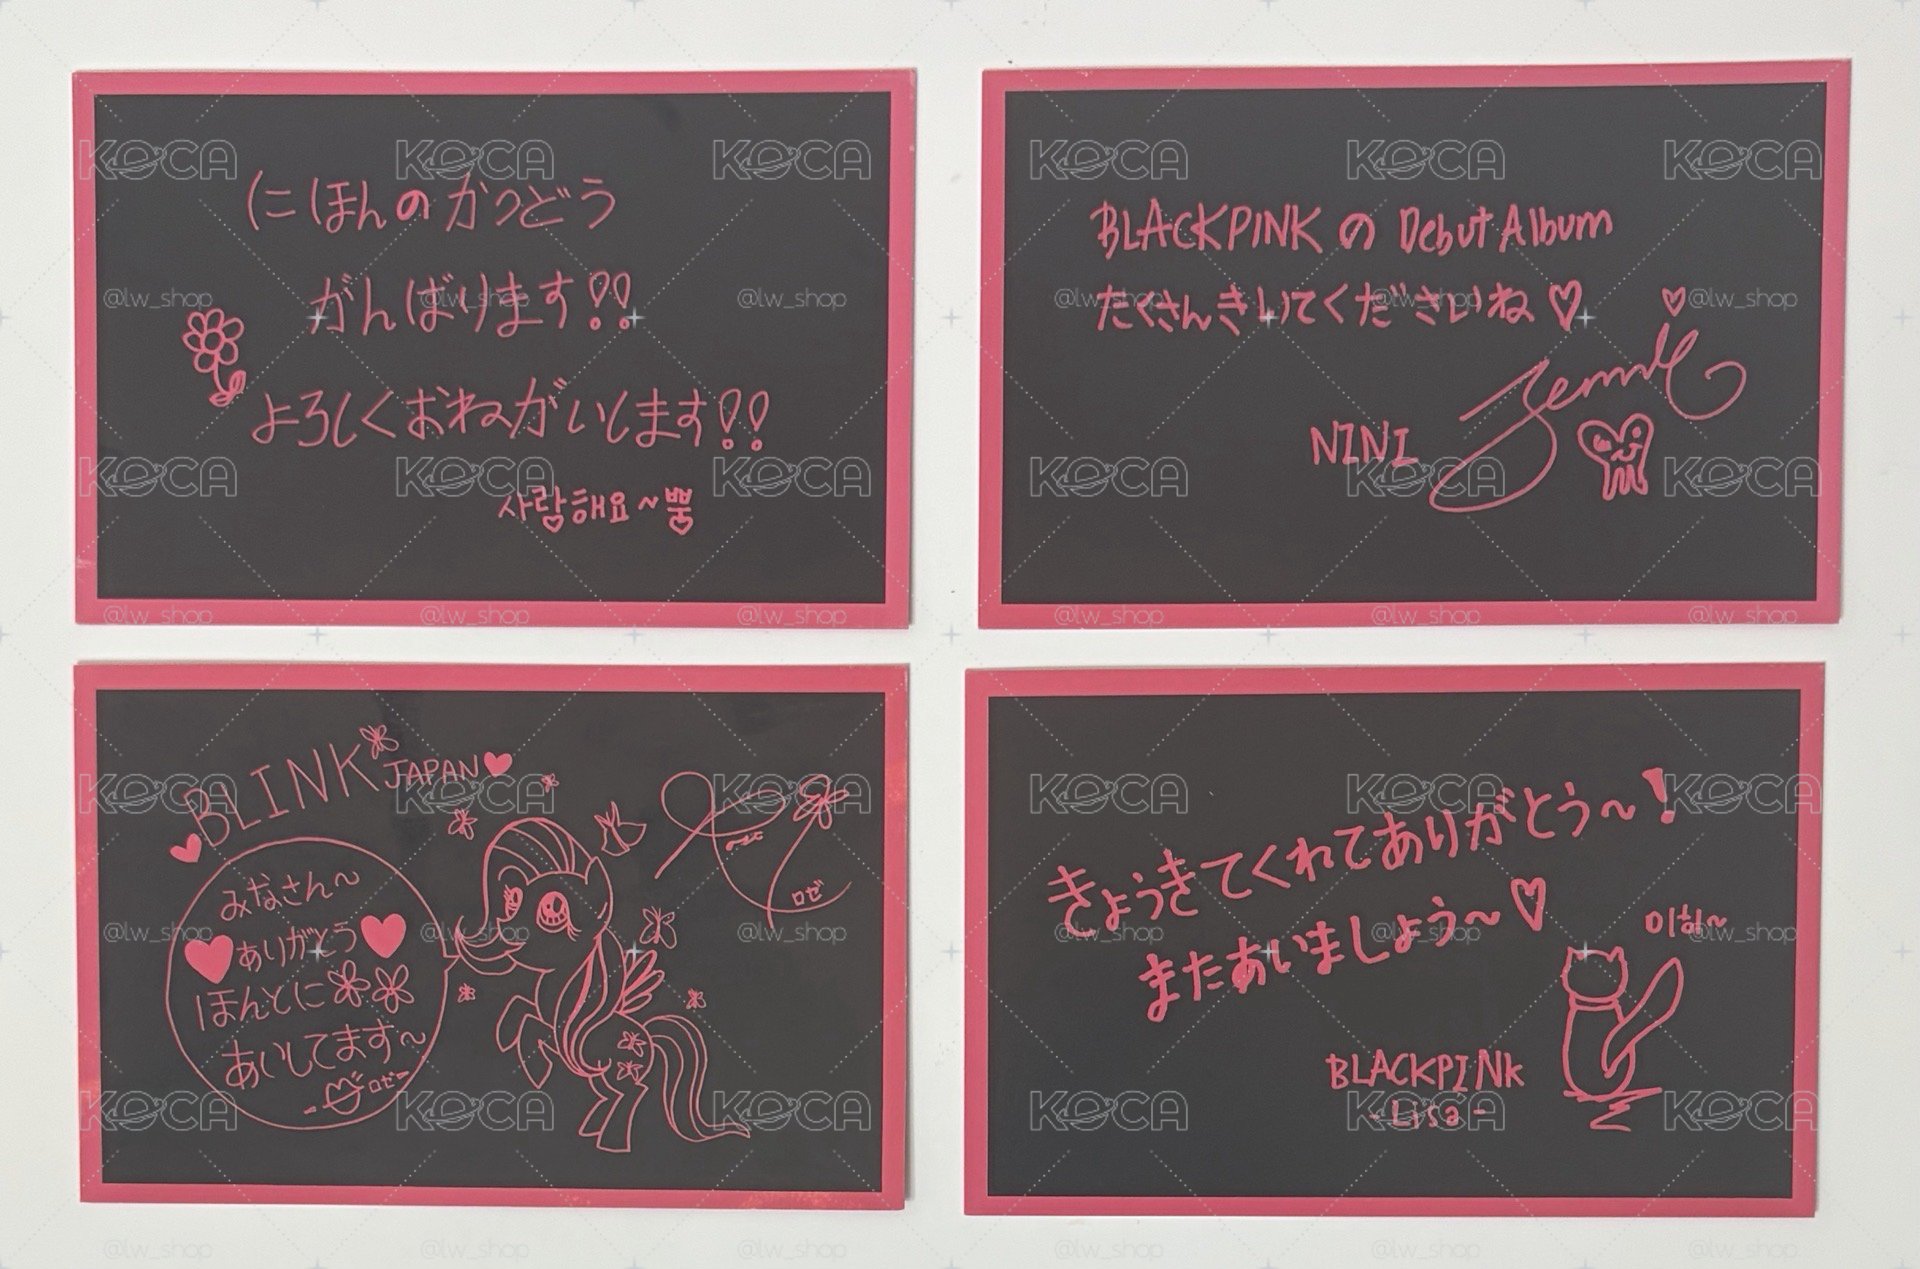 にほんのかつどう
がんばります!!
よろしくおねがいします!!
사랑해요~뿅
BLACKPINKの Debut Album
たくさんきいてくださいね♡
Jennie
NINI
BLINK JAPAN
みなさん〜
ありがとう
ほんとに
あいしてます〜
ロゼ
ロゼ
きょうきてくれてありがとう〜!
またあいましょう〜♡
BLACKPINK
-Lisa-
KOCA
@lw_shop